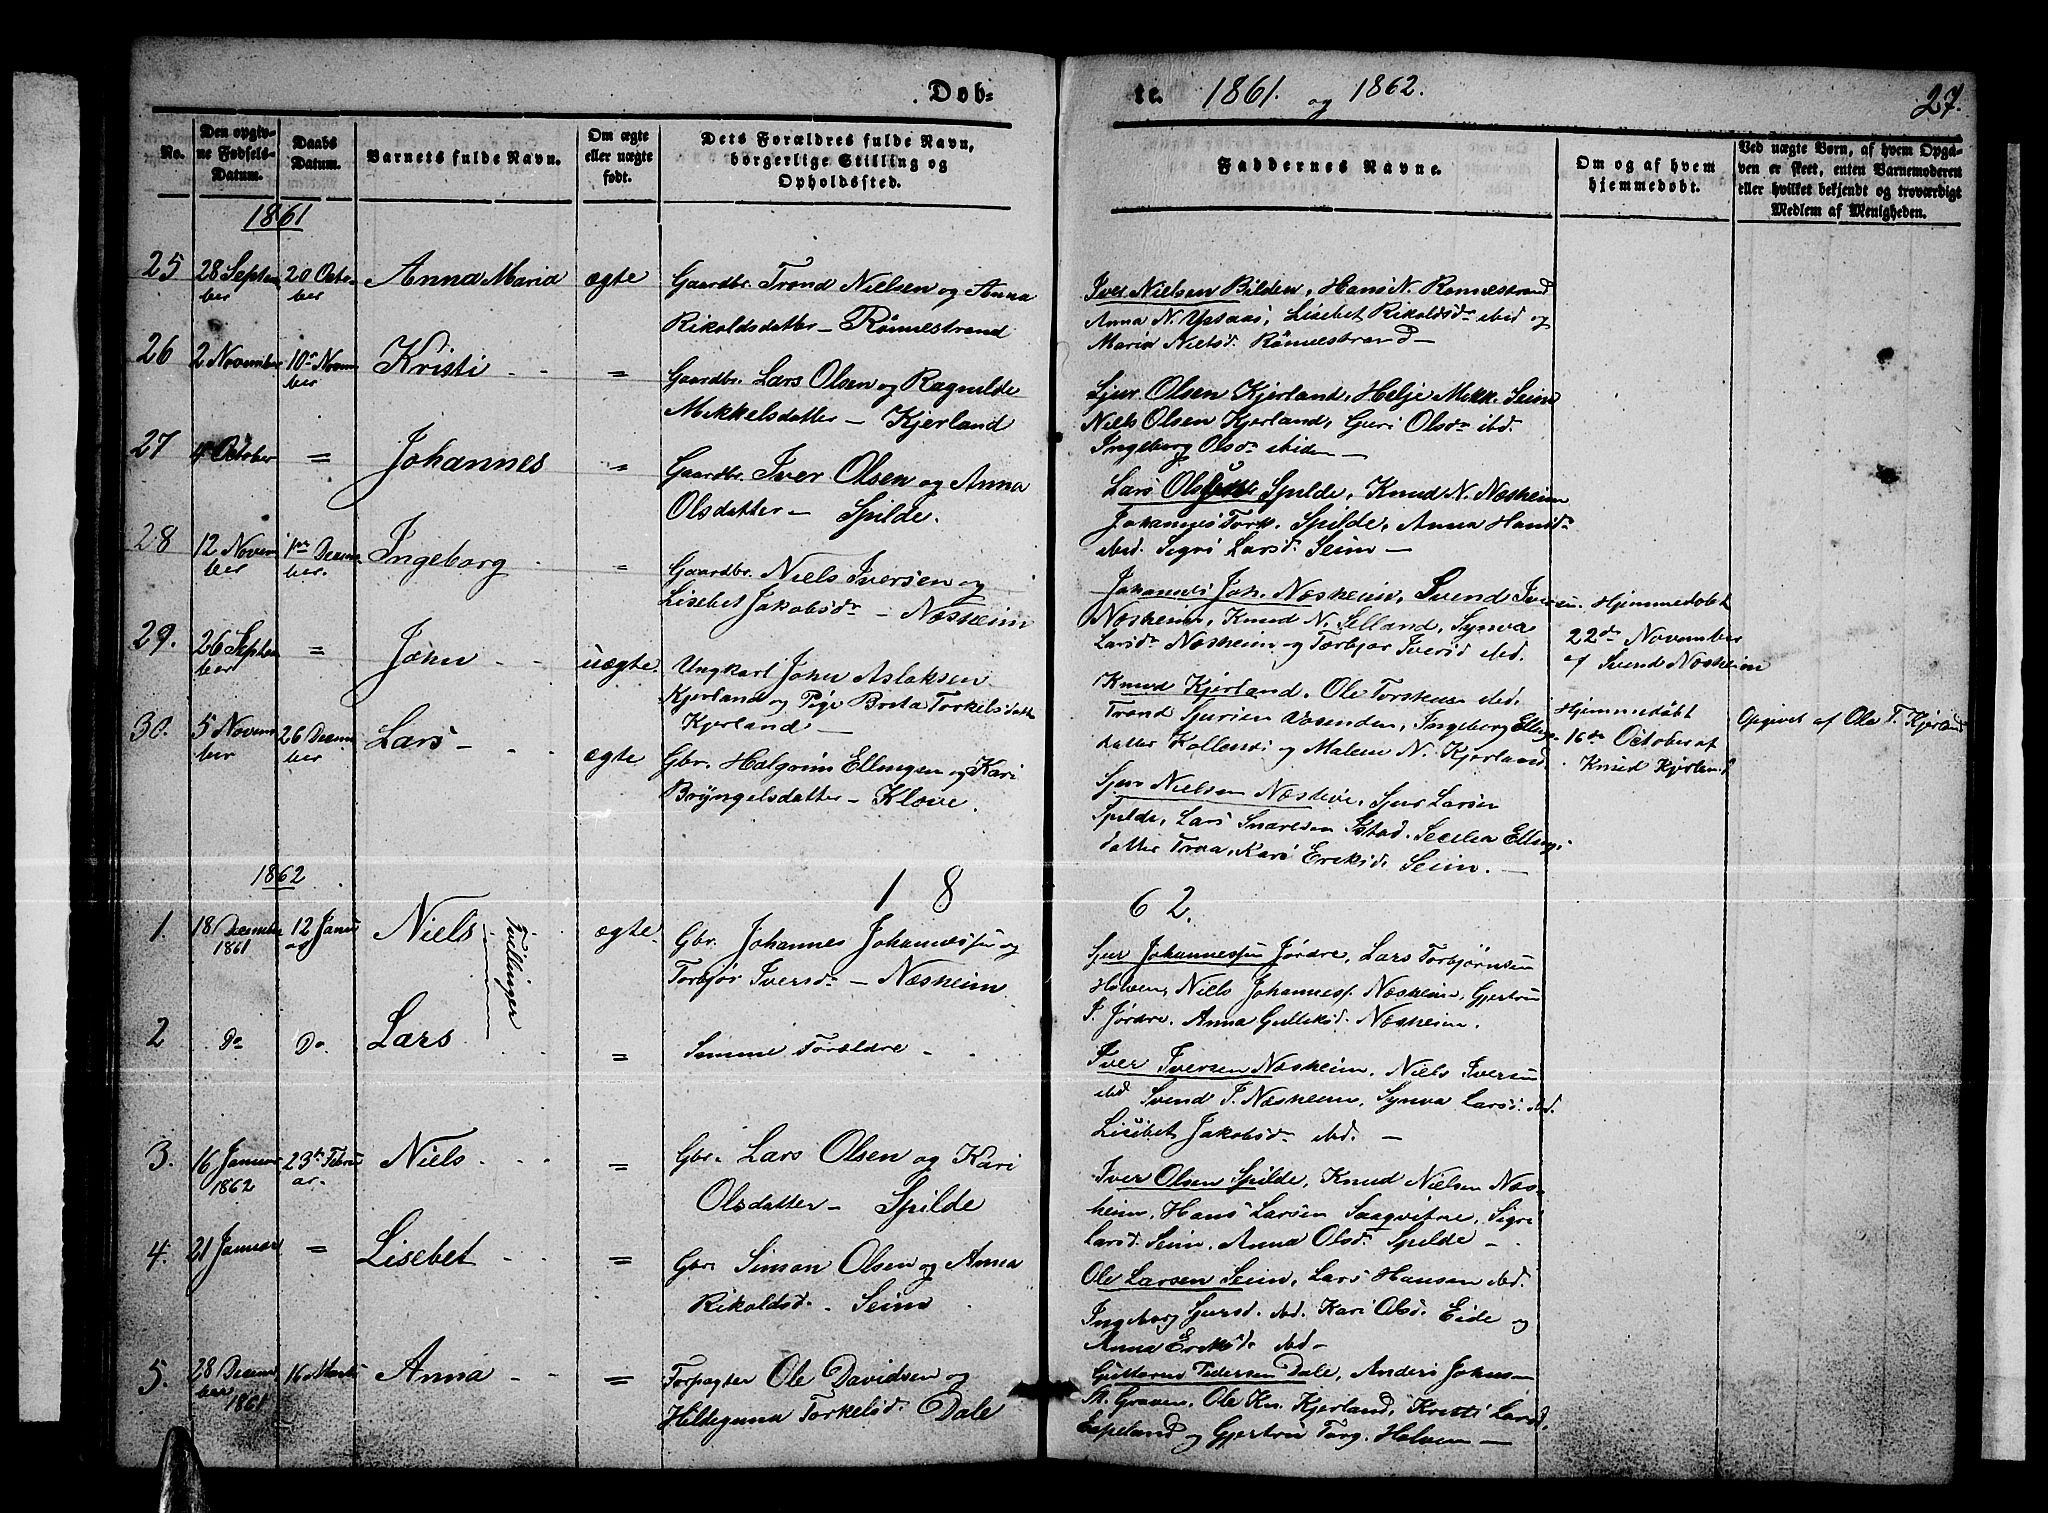 Døb-
te. 1861. og 1862.
27.
No.
Den opgiv-
ne Fødsels-
Datum.
Daabs
Datum.
Barnets fulde Navn.
Om ægte
eller uægte
født.
Dets Forældres fulde Navn,
borgerlige Stilling og
Opholdssted.
Faddernes Navne.
Om og af hvem
hjemmedøbt.
Ved uægte Børn, af hvem Opga-
ven er skeet, enten Barnemoderen
eller hvilket bekjendt og troværdigt
Medlem af Menigheden.
1861
25 28 Septem
ber
20 Octo-
ber
Anna Maria ægte
Gaardbr. Trond Nielsen og Anna
Rikoldsdatter - Rönnestrand
Iver Nielsen Bilden, Hans N. Rönnestrand
Anna N. Ystaas, Lisebet Rikoldsd. ibid og
Maria Nielsd. Rönnestrand -
26 2 November
10de Novem
ber
Kristi - - "
Gaardbr. Lars Olsen og Ragnilde
Mikkelsdatter - Kjerland
Sjur Olsen Kjerland, Helje Mikk. Seim
Niels Olsen Kjerland, Guri Olsd. ibd.
Ingeborg Olsd. ibiden -
27 4 October = Johannes "
Gaardbr. Iver Olsen og Anna
Olsdatter - Spilde.
Lars Olsen Spilde, Knud N. Næsheim
Johannes Tork. Spilde, Anna Hansd.
ibid. Sigri Larsd. Seim -
28 12 Novem
ber
1ste Decem-
ber.
Ingeborg - "
Gaardbr. Niels Iversen og
Lisebet Jakobsd. - Næsheim
Johannes Joh. Næsheim, Svend Iversen
Næsheim, Knud N. Lilland, Synva
Larsd. Næsheim og Torbjor Iversd ibd.
Hjemmedøbt
22de November
af Svend Næsheim
29. 26 Septem
ber
= John - - uægte
Ungkarl John Aslaksen
Kjerland og Pige Brita Torkelsdatt
Kjerland -
Knud Kjerland, Ole Torkelsen ibd.
Trond Sjursen Vasenden, Ingeborg Ellings
datter Kollenes og Malene N. Kjerland.
Hjemmedøbt
16de October af
Knud Kjerland
Opgivet af Ole T. Kjerland
30. 5 Novem
ber
26 Decem
ber
Lars - - - ægte
Gbr. Halgrim Ellingsen og Kari
Bryngelsdatter - Klove.
Sjur Nielsen Næsheim, Sjur Larsen
Spilde, Lars Snaresen Istad. Secilia Ellings
datter Trona, Kari Eriksd. Seim. -
1862
1 8 6 2.
1. 18 December
1861
12 Janu
ar
Niels
Tvillinger
ægte.
Gbr. Johannes Johannessen og
Torbjør Iversd. - Næsheim
Sjur Johannessen Jördre, Lars Torbjörnsen
Halven, Niels Johannesf. Næsheim, Gjertru
I. Jördre. Anna Gulleksd. Næsheim.
2 Do Do Lars " Samme Foraldre -
Iver Iversen Næsheim, Niels Iversen
ibd Svend I. Næsheim, Synva Larsd. ibd.
Lisebet Jakobsd. ibd. -
3. 16 Januar
1862
23de Febru
ar.
Niels - - - =
Gbr. Lars Olsen og Kari
Olsdatter - Spilde
Iver Olsen Spilde, Knud Nielsen Næs-
heim, Hans Larsen Saaqvitne, Sigri
Larsd. Seim, Anna Olsd. Spilde -
4. 21 Januar = Lisebet - - =
Gbr. Simon Olsen og Anna
Rikoldsd. - Seim
Ole Larsen Seim, Lars Hansen ibd.
Ingeborg Sjursd. ibd. Kari Olsd. Eide og
Anna Eriksd. ibd -
5. 28 Decem
ber
1861
16 Marts Anna - - =
Forpagter Ole Davidsen og
Hildegunna Torkelsd. Dale
Guttorm Pedersen Dale, Anders Johns-
St. Graven, Ole Kn. Kjerland, Kristi Larsd.
Espeland og Gjertru Torg. Halven -